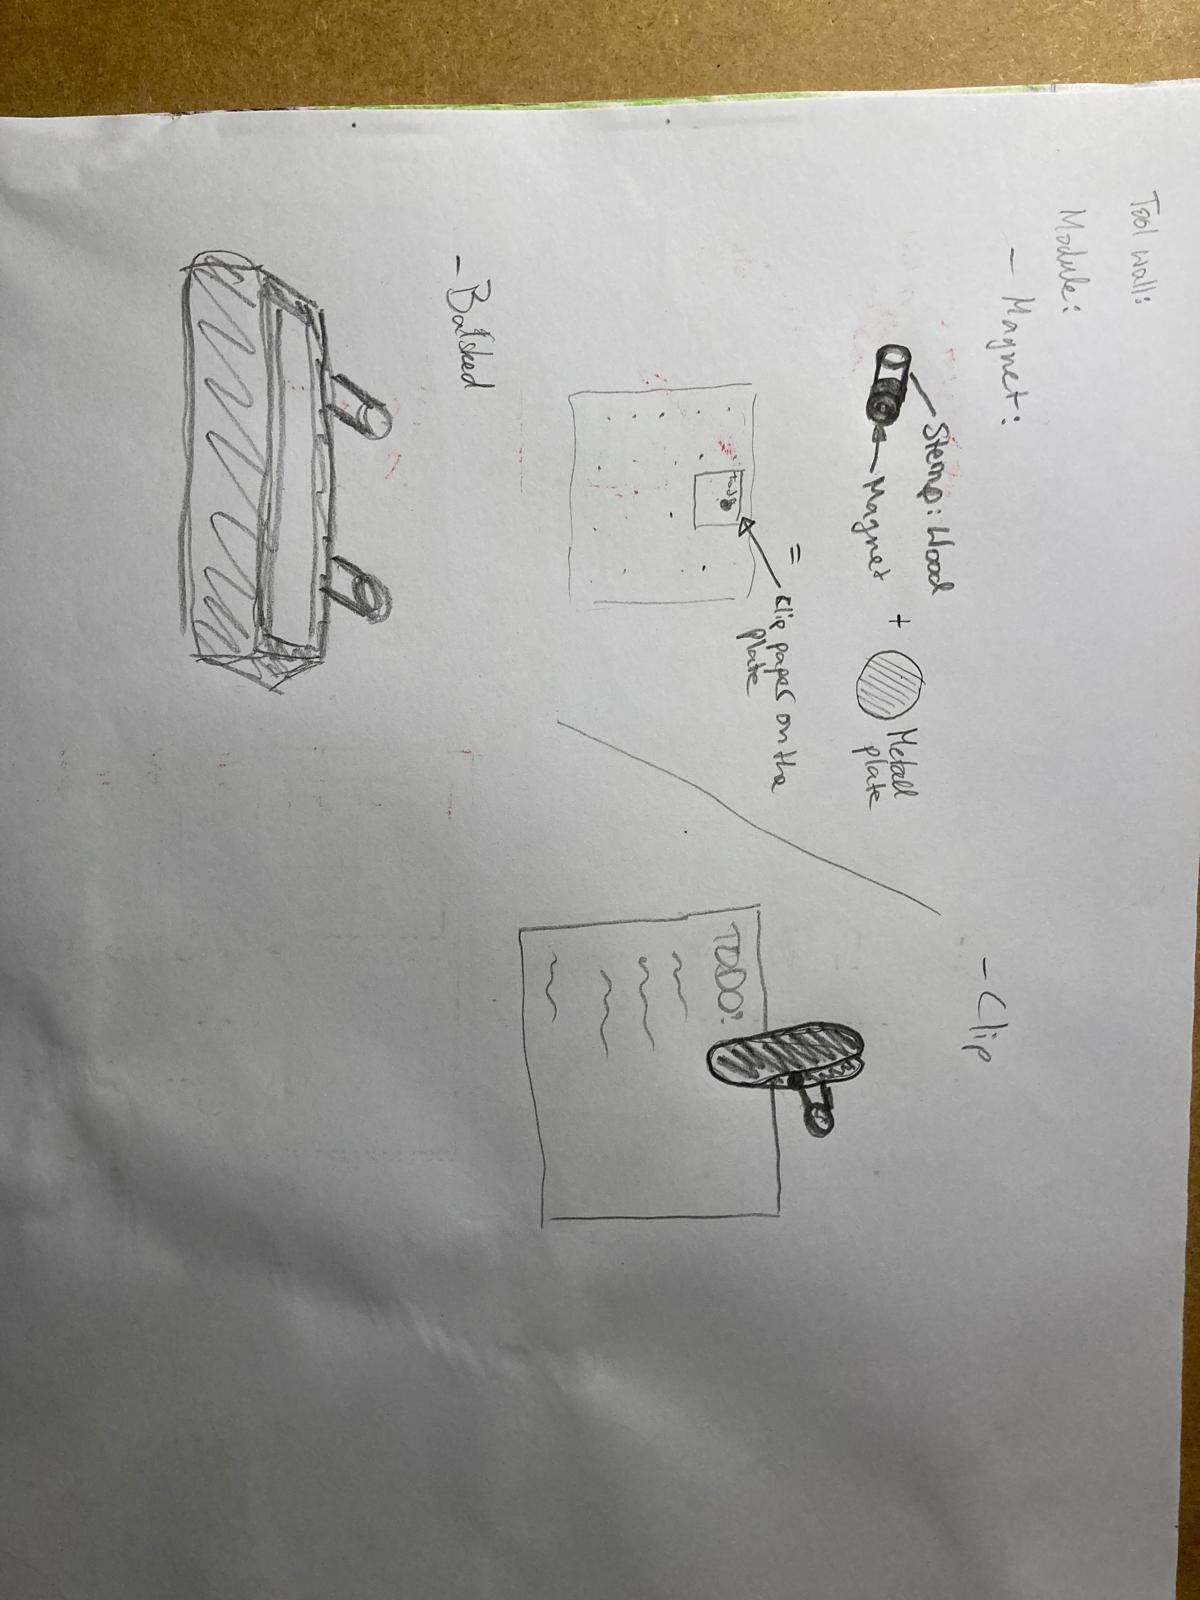 Tool wall:
Module:
- Magnet:
Stemp: Wood
Magnet
+
Metall
plate
=
Clip paper on the
plate
- Clip
TODO:
- Batsked